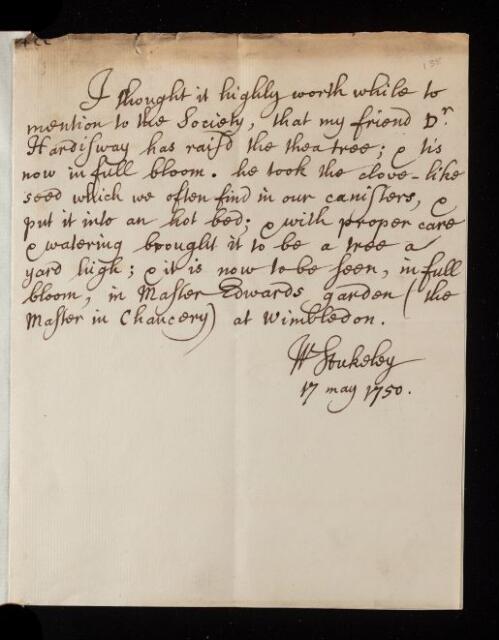 138
I thought it highly worth while to
mention to the Society, that my friend Dr.
Hardisway has rais'd the thea tree; & tis
now in full bloom. he took the clove-like
seed which we often find in our canisters, &
put it into an hot bed; & with proper care
& watering brought it to be a tree a
yard high; & it is now to be seen, in full
bloom, in Master Edwards garden (the
Master in Chancery) at Wimbledon.
Wm Stukeley
17 may 1750.